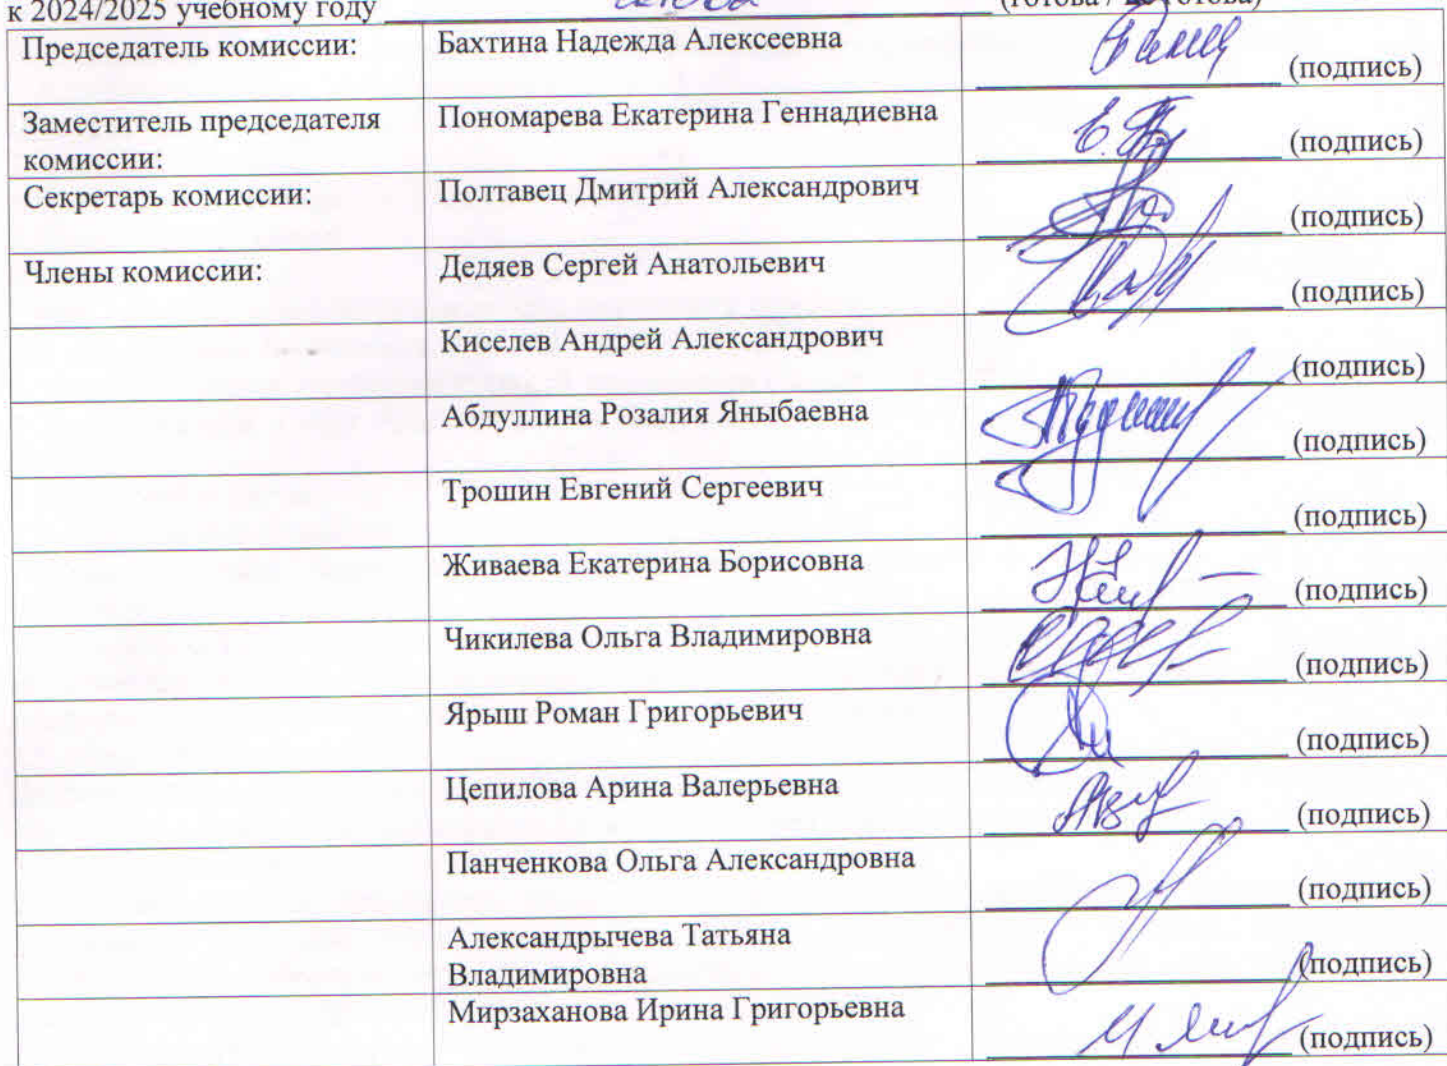 к 2024/2025 учебному году готова (готова / не готова)
Председатель комиссии: Бахтина Надежда Алексеевна (подпись)
Заместитель председателя Пономарева Екатерина Геннадиевна (подпись)
комиссии:
Секретарь комиссии: Полтавец Дмитрий Александрович (подпись)
Члены комиссии: Дедяев Сергей Анатольевич (подпись)
Киселев Андрей Александрович (подпись)
Абдуллина Розалия Яныбаевна (подпись)
Трошин Евгений Сергеевич (подпись)
Живаева Екатерина Борисовна (подпись)
Чикилева Ольга Владимировна (подпись)
Ярыш Роман Григорьевич (подпись)
Цепилова Арина Валерьевна (подпись)
Панченкова Ольга Александровна (подпись)
Александрычева Татьяна
Владимировна (подпись)
Мирзаханова Ирина Григорьевна (подпись)